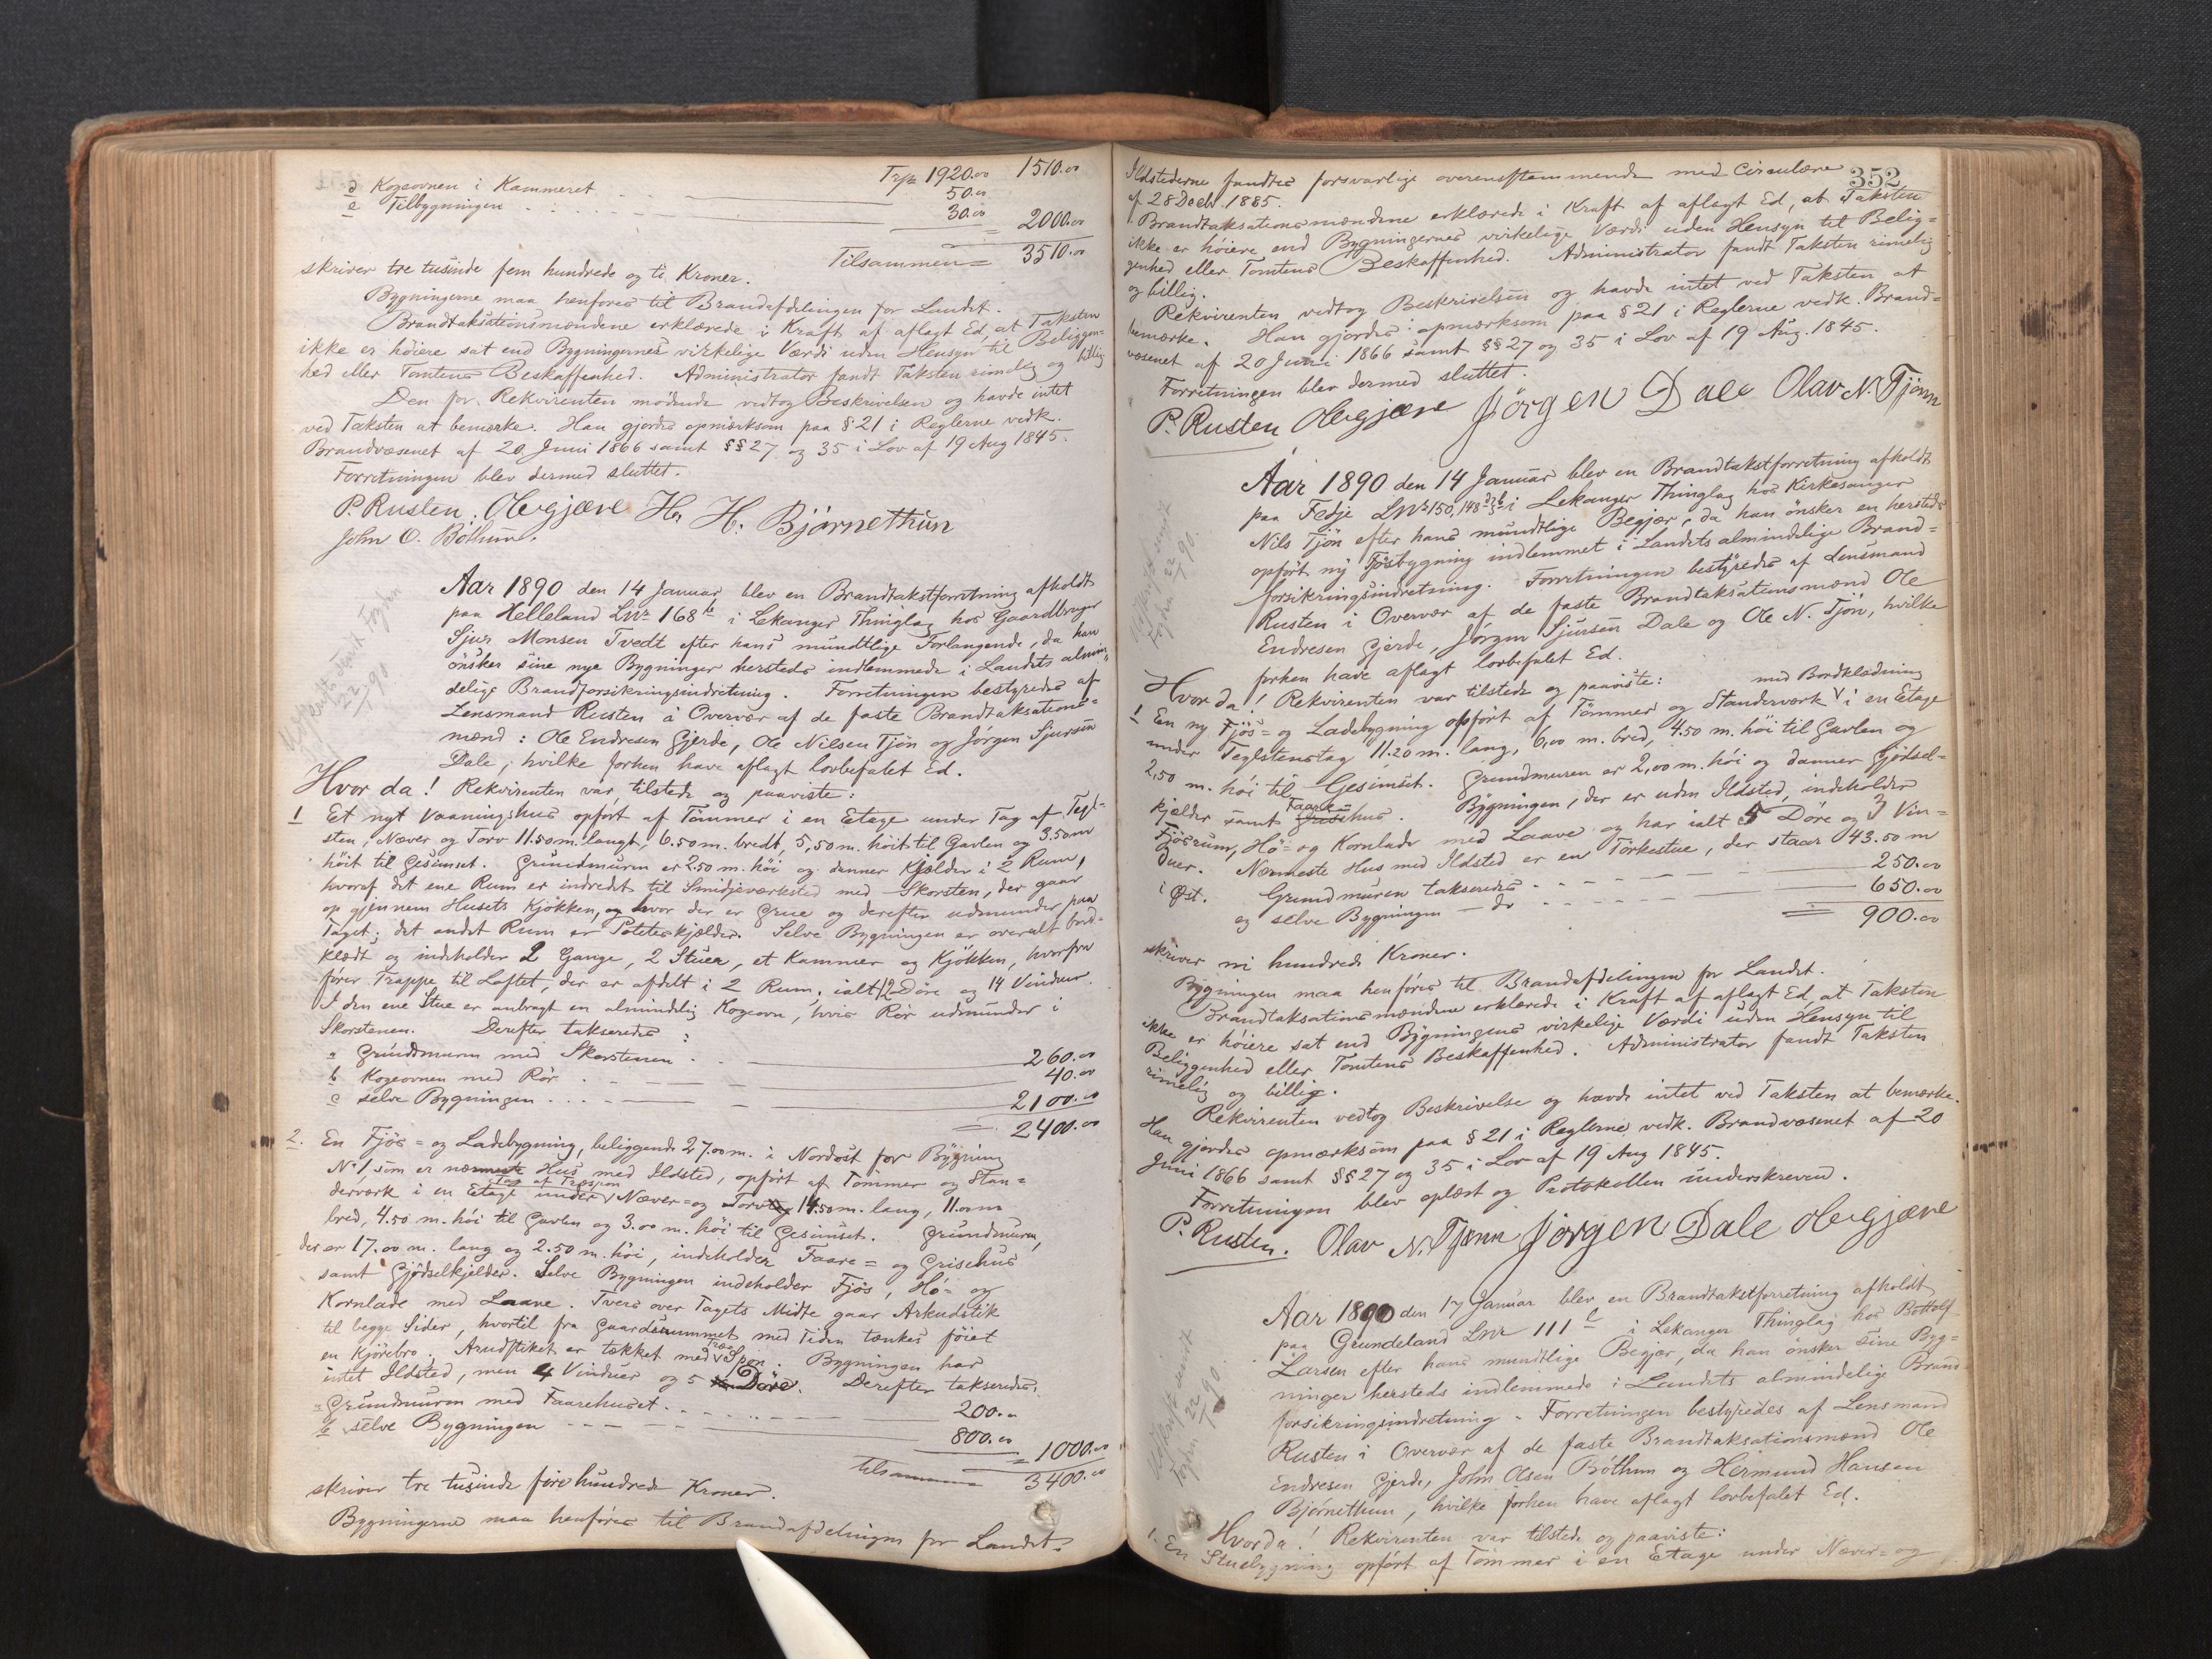 Trp 1920.00 1510.00
d Kogeovnen i Kammeret 50.00
e Tilbygningen 30.00 = 2000.00
Tilsammen = 3510.00
skriver tre tusinde fem hundrede og ti Kroner.
Bygningerne maa henføres til Brandafdelingen for Landet.
Brandtaksationsmændene erklærede i Kraft af aflagt Ed, at Taksten
ikke er høiere sat end Bygningernes virkelige Værdi uden Hensyn til Beliggen-
hed eller Tomtens Beskaffenhed. Administrator fandt Taksten rimelig og billig.
Den for Rekvirenten mødende vedtog Beskrivelsen og havde intet
ved Taksten at bemærke. Han gjordes opmærksom paa § 21 i Reglerne vedk.
Brandvæsenet af 20 Juni 1866 samt §§ 27 og 35 i Lov af 19 Aug 1845.
Forretningen blev dermed sluttet.
P. Rusten. Ole gjære H. H. Bjørnethun
John O. Bøthun.
Aar 1890 den 14 Januar blev en Brandtakstforretning afholdt
paa Helleland Lnr 168 b i Lekanger Thinglag hos Gaardbruger
Sjur Monsen Tvedt efter hans mundtlige Forlangende, da han
ønsker sine nye Bygninger hersteds indlemmede i Landets almin-
delige Brandforsikringsindretning. Forretningen bestyredes af
Lensmand Rusten i Overvær af de faste Brandtaksations-
mænd: Ole Endresen Gjerde, Ole Nilsen Tjøn og Jørgen Sjursen
Dale, hvilke forhen have aflagt lovbefalet Ed.
Udskrift sendt Fogden
22/1 90.
Hvor da! Rekvirenten var tilstede og paaviste:
1 Et nyt Vaaningshus opført af Tømmer i en Etage under Tag af Tegl-
sten, Næver og Torv 11.50 m. langt, 6.50 m. bredt, 5,50 m. høit til Gavlen og 3.50 m
høit til Gesimset. Grundmuren er 2.50 m. høi og danner Kjælder i 2 Rum,
hvoraf det ene Rum er indredet til Smidjeværksted med Skorsten, der gaar
op gjennem Husets Kjøkken, og hvor der er Grue og derefter udmunder paa
Taget; det andet Rum er Poteteskjælder. Selve Bygningen er overalt bord-
klædt og indeholder 2 Gange, 2 Stuer, et Kammer og Kjøkken, hvorfra
fører Trappe til Loftet, der er afdelt i 2 Rum; ialt 12 Døre og 14 Vinduer.
I den ene Stue er anbragt en almindelig Kogeovn, hvis Rør udmunder i
Skorstenen. Derefter takseredes:
a Grundmuren med Skorstenen 260.00
b Kogeovnen med Rør 40.00
c selve Bygningen 2100.00
= 2400.00
2. En Fjøs- og Ladebygning, beliggende 27.00 m. i Nordost for Bygning
No 1, som er nærmeste Hus med Ildsted, opført af Tømmer og Stan-
derværk i en Etage under Tag af Træspon Næver- og Torv 14.50 m. lang, 11.00 m
bred, 4.50 m. høi til Gavlen og 3.00 m. høi til Gesimset. Grundmuren,
der er 17.00 m. lang og 2.50 m. høi, indeholder Faare- og Grisehus
samt Gjødselkjelder. Selve Bygningen indeholder Fjøs, Hø- og
Kornlade med Laave. Tvers over Tagets Midte gaar Arkudstik
til begge Sider, hvortil fra Gaardsrummet med Tiden tænkes føiet
en Kjørebro. Arudstiket er tækket med Træ Spon. Bygningen har
intet Ildsted, men 4 Vinduer og 5 Døre. Derefter takseredes:
a Grundmuren med Faarehuset 200.00
b selve Bygningen 800.00
= 1000.00
tilsammen 3400.00
skriver tre tusinde fire hundrede Kroner.
Bygningerne maa henføres til Brandafdelingen for Landet.
352
Ildstederne fandtes forsvarlige overensstemmende med Circulære
af 28 Decb. 1885.
Brandtaksationsmændene erklærede i Kraft af aflagt Ed, at Taksten
ikke er høiere end Bygningernes virkelige Værdi uden Hensyn til Belig-
genhed eller Tomtens Beskaffenhed. Administrator fandt Taksten rimelig
og billig.
Rekvirenten vedtog Beskrivelsen og havde intet ved Taksten at
bemærke. Han gjordes opmærksom paa § 21 i Reglerne vedk. Brand-
væsenet af 20 Juni 1866 samt §§ 27 og 35 i Lov af 19 Aug. 1845.
Forretningen blev dermed sluttet.
P. Rusten Ole gjære Jørgen Dale Olav N. Tjønn
Aar 1890 den 14 Januar blev en Brandtakstforretning afholdt
paa Fedje Lnr 150, 148 i Lekanger Thinglag hos Kirkesanger
Nils Tjøn efter hans mundtlige Begjær, da han ønsker en hersteds
opført ny Fjøsbygning indlemmet i Landets almindelige Brand-
forsikringsindretning. Forretningen bestyredes af Lensmand
Rusten i Overvær af de faste Brandtaksationsmænd Ole
Endresen Gjerde, Jørgen Sjursen Dale og Ole N. Tjøn, hvilke
forhen have aflagt lovbefalet Ed.
Udskrift sendt
Fogden 22/1 90.
Hvor da! Rekvirenten var tilstede og paaviste: med Bordklædning
1 En ny Fjøs- og Ladebygning opført af Tømmer og Standerværk i en Etage
under Teglstenstag 11.20 m. lang, 6,00 m. bred, 4.50 m. høi til Gavlen og
2,50 m. høi til Gesimset. Grundmuren er 2,00 m. høi og danner Gjødsel-
kjelder samt Faare- Grisehus. Bygningen, der er uden Ildsted, indeholder
Fjøsrum, Hø- og Kornlade med Laave og har ialt 5 Døre og 3 Vin-
duer. Nærmeste Hus med Ildsted er en Tørkestue, der staar 43.50 m
i Øst. Grundmuren takseredes 250.00
og selve Bygningen — do 650.00
= 900.00
skriver ni hundrede Kroner.
Bygningen maa henføres til Brandafdelingen for Landet.
Brandtaksationsmændene erklærede i Kraft af aflagt Ed, at Taksten
ikke er høiere sat end Bygningens virkelige Værdi uden Hensyn til
Beliggenhed eller Tomtens Beskaffenhed. Administrator fandt Taksten
rimelig og billig.
Rekvirenten vedtog Beskrivelse og havde intet ved Taksten at bemærke.
Han gjordes opmærksom paa § 21 i Reglerne vedk. Brandvæsenet af 20
Juni 1866 samt §§ 27 og 35 i Lov af 19 Aug 1845.
Forretningen blev oplæst og Protokollen underskreven.
P. Rusten. Olav N. Tjønn Jørgen Dale Ole gjære
Aar 1890 den 17 Januar blev en Brandtakstforretning afholdt
paa Grundeland Lnr 111 i Lekanger Thinglag hos Bottolf
Larsen efter hans mundtlige Begjær, da han ønsker sine Byg-
ninger hersteds indlemmede i Landets almindelige Brand-
forsikringsindretning. Forretningen bestyredes af Lensmand
Rusten i Overvær af de faste Brandtaksationsmænd Ole
Endresen Gjerde, John Olsen Bøthun og Hermund Hansen
Bjørnethun, hvilke forhen have aflagt lovbefalet Ed.
Udskrift sendt
Fogden 22/1 90.
Hvor da! Rekvirenten var tilstede og paaviste:
1. En Stuebygning opført af Tømmer i en Etage under Næver- og